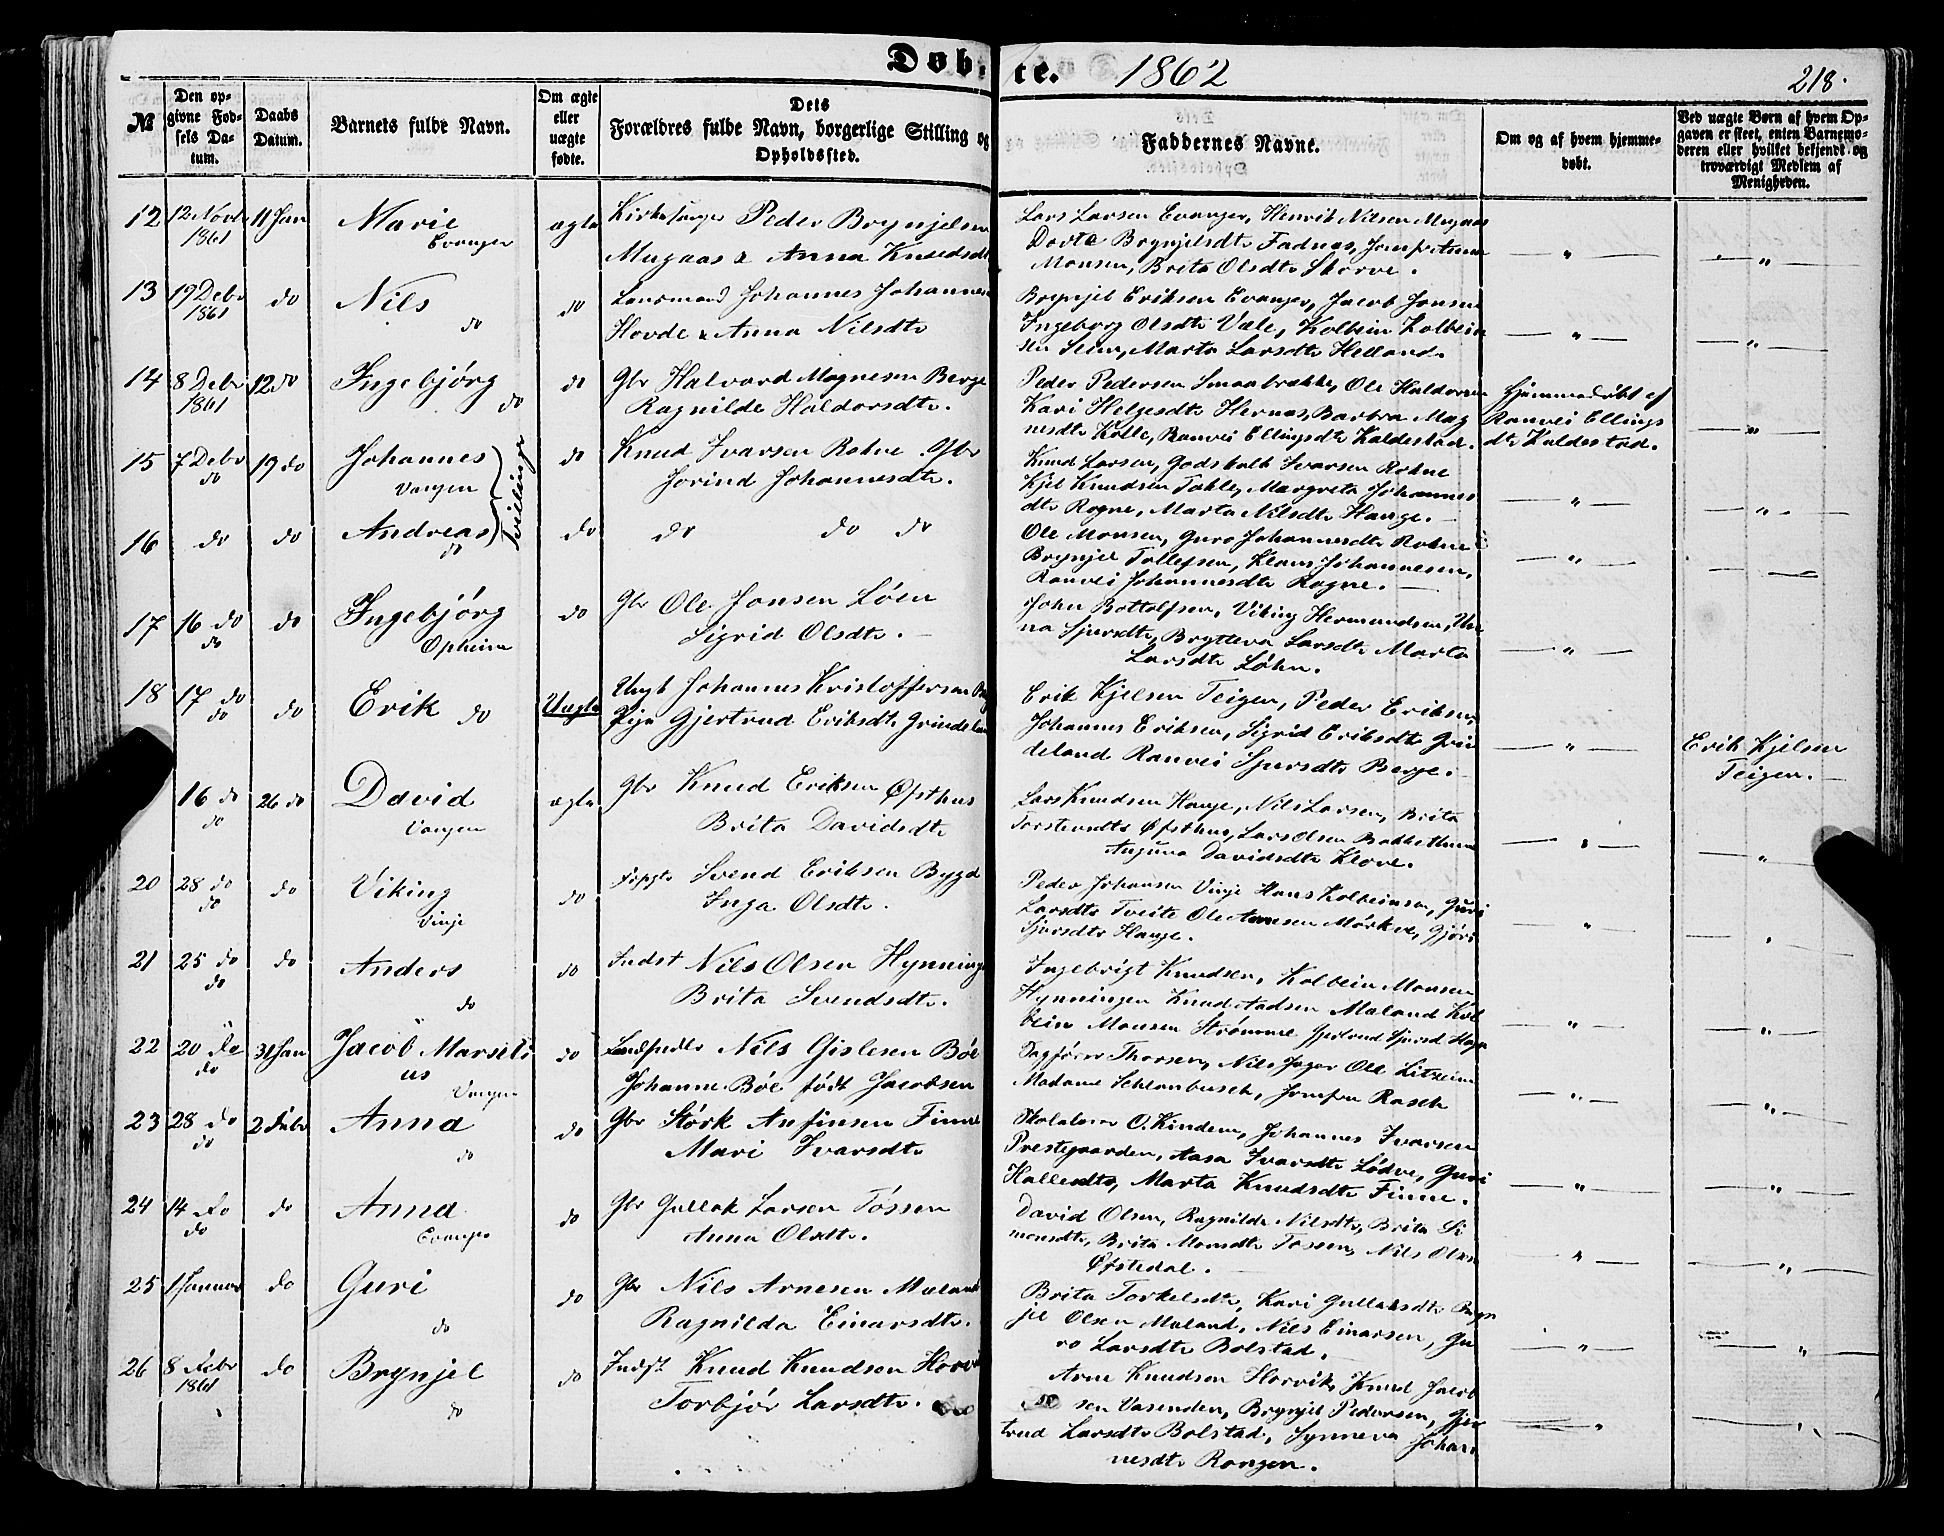 Døbte. 1862
218.
№
Den opgivne Fødsels Datum.
Daabs Datum.
Barnets fulde Navn.
Om ægte eller uægte fødte.
Dets Forældres fulde Navn, borgerlige Stilling og Opholdssted.
Faddernes Navne.
Om og af hvem hjemmedøbt.
Ved uægte Børn af hvem Opgaven er skeet, enten Barnemoderen eller hvilket bekjendt og troværdigt Medlem af Menigheden.
12 12 Novbr 1861 11 Jan Marie Evanger ægte Kirkesanger Peder Brynjelsen
Mugaas & Anna Knudsdt
Lars Larsen Evanger, Henrik Nilsen Mugaas
Dorte Brynjelsdtr Fadnes, Jomfr Anna
Monsen, Brita Olsdtr Skorve.
13 19 Debr 1861 do Nils do do Lensmand Johannes Johannesen
Hovde & Anna Nilsdtr
Brynjel Eriksen Evanger, Jacob Jonsen
Ingeborg Olsdtr Væle, Kolbein Kolbein
sen Seim, Marta Larsdtr Helland.
14 8 Debr 1861 12 do Ingebjörg do do Gbr Halvard Magnesen Berge
Ragnilde Haldorsdtr.
Peder Pedersen Smaabrække, Ole Haldorsen
Kari Helgesdtr Hernes, Barbra Mag
nesdtr Kolle, Ranvei Ellingsdtr Kaldestad.
Hjemmedøbt af
Ranvei Ellings
dtr Kaldestad.
15 7 Debr do 19 do Johannes Vangen Tvillinge do Knud Ivarsen Rokne Gbr
Jorind Johannesdtr.
Knud Larsen, Godskalk Ivarsen Rokne
Kjel Knudsen Takle, Margreta Johannes
dtr Rogne, Marta Nilsdtr Hauge.
16 do do Andreas do do do do do
Ole Monsen, Guro Johannesdtr Rokne
Brynjel Tollefsen, Klaus Johannesen,
Ranvei Johannesdtr Rogne.
17 16 do do do Ingebjörg Opheim do Gbr Ole Jonsen Löen
Sigrid Olsdtr.
John Bottolfsen, Viking Hermundsen, An
na Sjursdtr, Brytteva Larsdtr Marta
Larsdtr Löhn.
18 17 do do do Erik do Uægte Ungk Johannes Kristoffersen
Pige Gjertrud Eriksdtr Grindeland
Erik Kjelsen Teigen, Peder Eriksen,
Johannes Eriksen, Sigrid Eriksdtr Grin
deland Ranvei Sjursdtr Berge.
Erik Kjelsen
Teigen.
16 do do 26 do David Vangen ægte Gbr Knud Eriksen Øfsthus
Brita Davidsdtr
Lars Knudsen Hauge, Nils Larsen, Brita
Torsteinsdtr Øfsthus, Lars Olsen Bakkethun
Anguna Davidsdtr Klove.
20 28 do do do Viking Vinje do Svend Eriksen Bygd
Inga Olsdtr.
Peder Johansen Vinje Hans Kolbeinsen, Guri
Larsdtr Tveite Ole Arnesen Mörkve, Gjöri
Sjursdtr Hauge.
21 25 do do do Anders do do Indst Nils Olsen Hynninge
Brita Svendsdtr.
Ingebrigt Knudsen, Kolbein Monsen
Hynningen Knud Aadsen Maland Kol
bein Monsen Strömme Gjertrud Sjursd
22 20 do do 31 Jan Jacob Marseli
us Vangen do Landhndlr Nils Gislesen Böe
Johanne Böe født Jacobsen
Sagförer Thorsen, Nils Jæger Ole Litzeim
Madame Schlanbusch, Jomfru Rasch
23 28 do do 2 Febr Anna do do Gbr Störk Anfinsen Finne
Mari Ivarsdtr
Skolelærer O. Kindem, Johannes Ivarsen
Prestegaarden, Aasa Ivarsdtr Lödve, Guri
Hallesdtr, Marta Knudsdtr Finne.
24 14 do do do Anna Evanger do Gbr Gullak Larsen Tössen
Anna Olsdtr.
David Olsen, Ragnilde Nilsdtr, Brita Si
monsdtr, Brita Monsdtr Tössen, Nils Olsen
Øfstedal.
25 1 Januar do Guri do do Gbr Nils Arnesen Mæland
Ragnilda Einarsdtr.
Brita Torkelsdtr, Kari Gullaksdtr Bryn
jel Olsen Mæland, Nils Einarsen, Gu
ro Larsdtr Bolstad.
26 8 Febr 1861 do Brynjel do do Indst. Knud Knudsen Horvi
Torbjör Larsdtr.
Arne Knudsen Horvik, Knud Jacob
sen Vasenden, Brynjel Pedersen, Gjer
trud Larsdtr Bolstad, Synneva Johan
nesdtr Rongen.